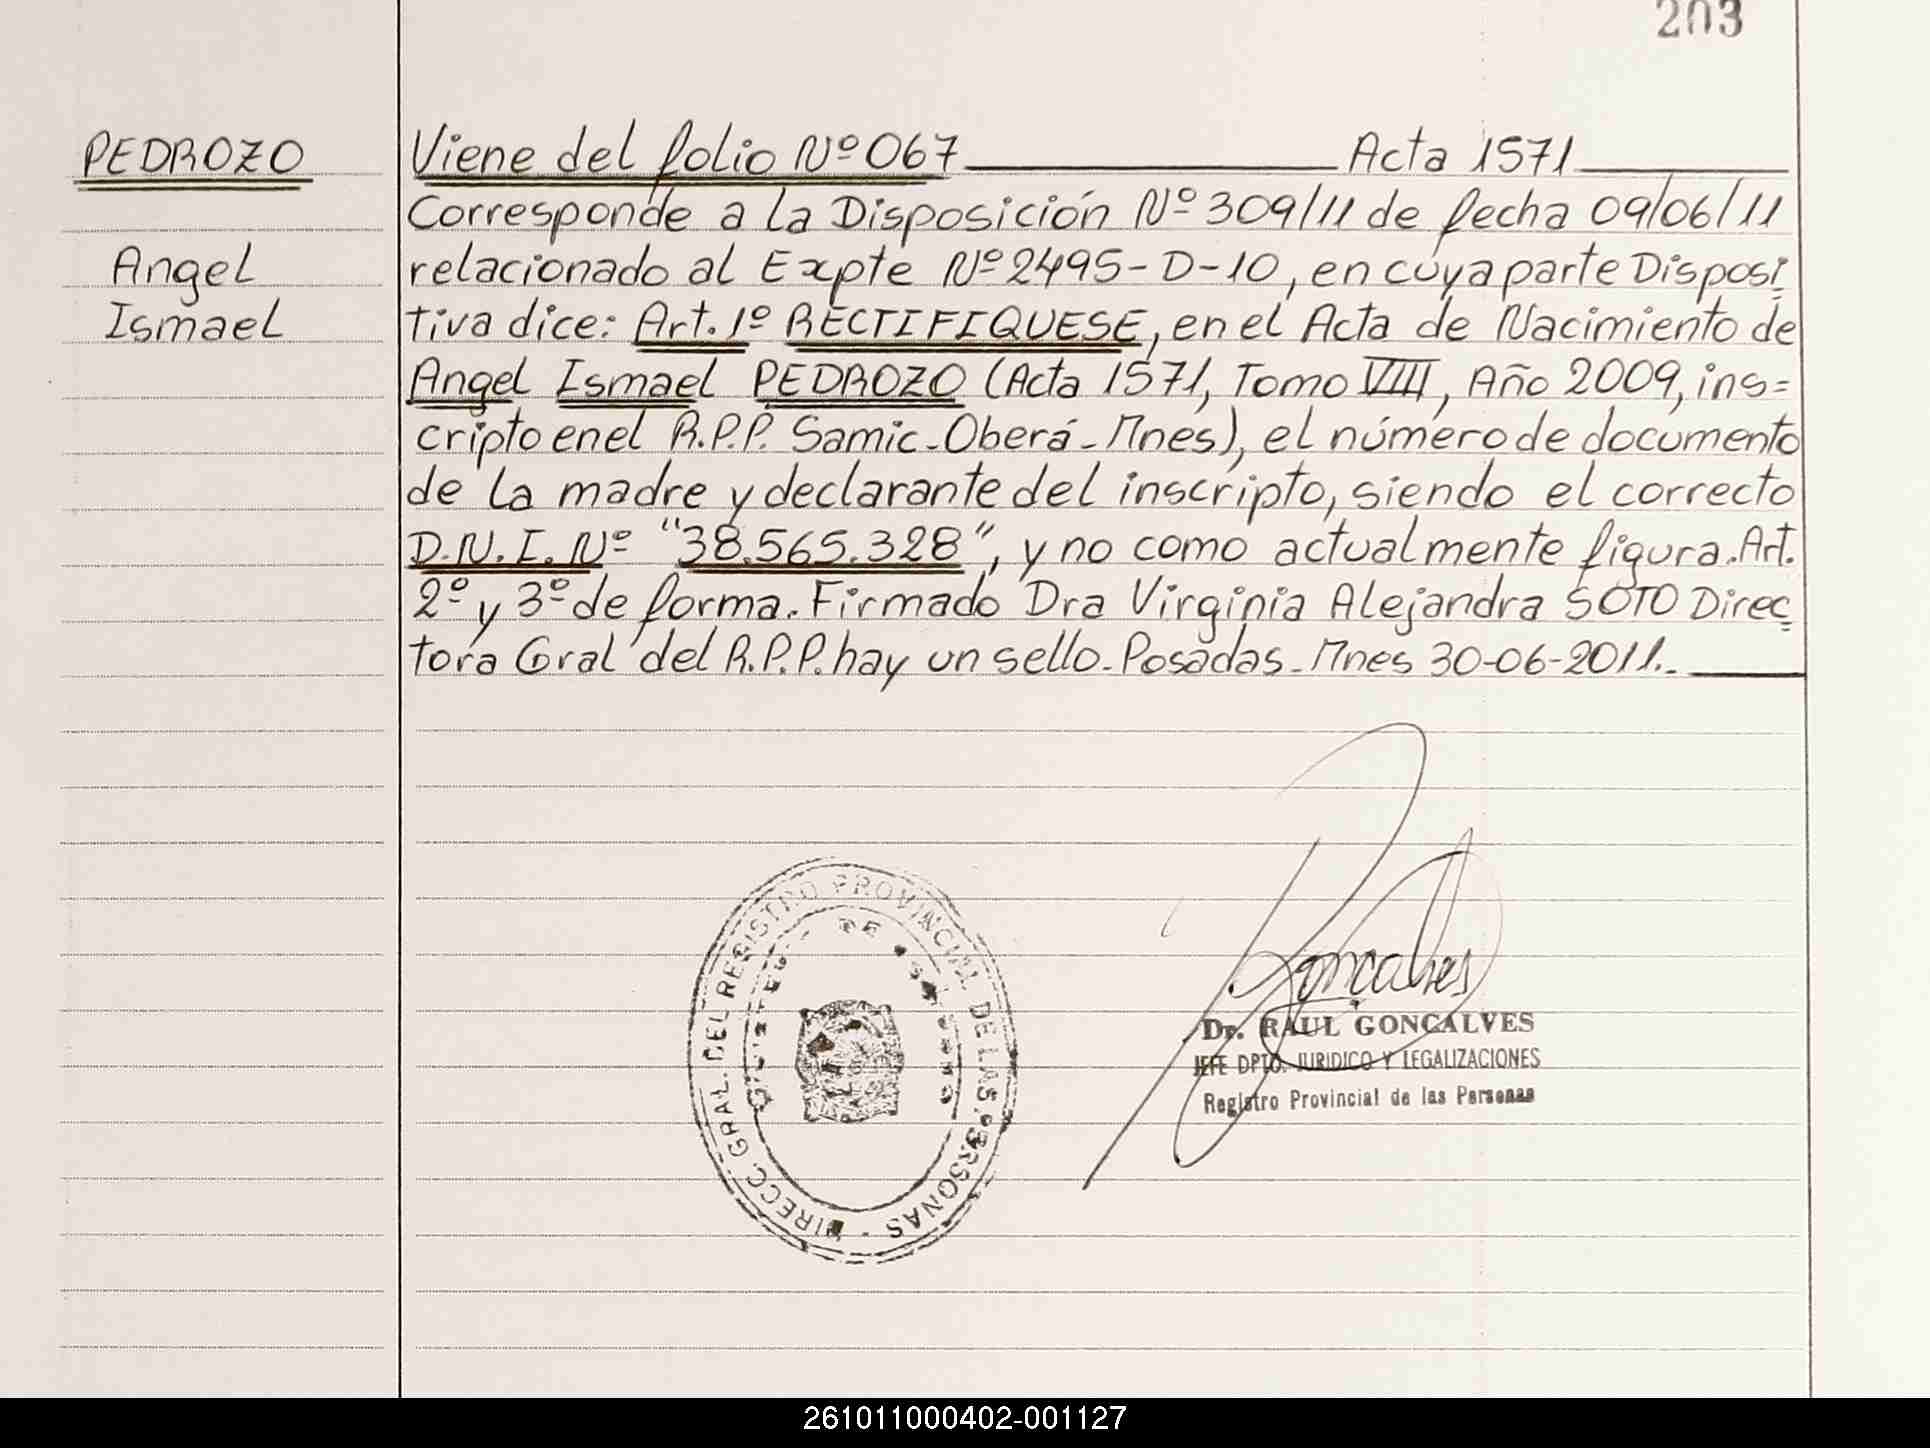 203
PEDROZO
Angel
Ismael
Viene del folio Nº 067 Acta 1571
Corresponde a la Disposición Nº 309/11 de fecha 09/06/11
relacionado al Expte Nº 2495-D-10, en cuya parte Disposi
tiva dice: Art. 1º RECTIFIQUESE, en el Acta de Nacimiento de
Angel Ismael PEDROZO (Acta 1571, Tomo VIII, Año 2009, ins=
cripto en el R.P.P. Samic-Oberá-Mnes), el número de documento
de la madre y declarante del inscripto, siendo el correcto
D.N.I. Nº "38.565.328", y no como actualmente figura. Art.
2º y 3º de forma. Firmado Dra Virginia Alejandra SOTO Direc
tora Gral del R.P.P. hay un sello-Posadas-Mnes 30-06-2011.-
DIRECC. GRAL. DEL REGISTRO PROVINCIAL DE LAS PERSONAS -
Goncalves
Dr. RAUL GONCALVES
JEFE DPTO. JURIDICO Y LEGALIZACIONES
Registro Provincial de las Personas
261011000402-001127